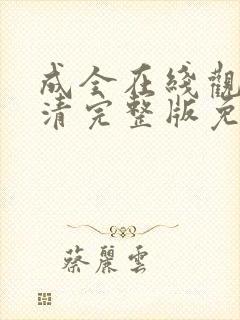 成全在綫觀
清完整版免
蔡麗雲